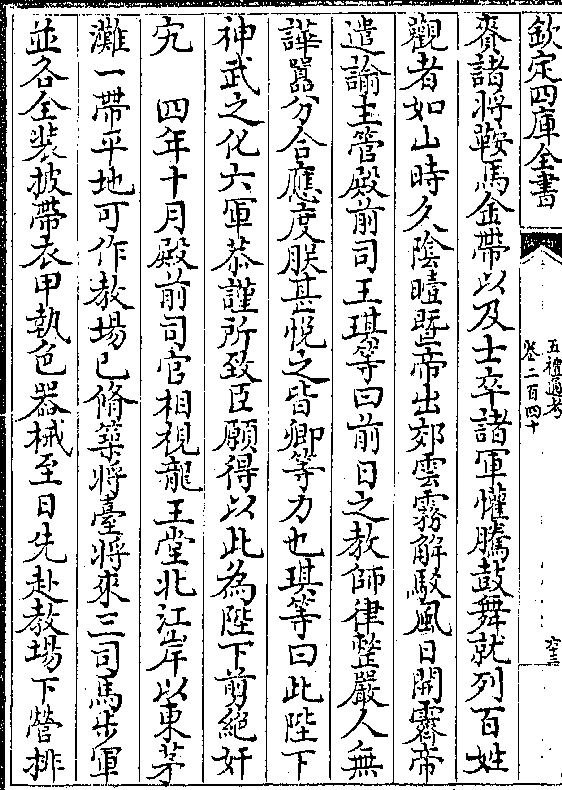 欽定四庫全書
五禮通考
卷二百四十
賚諸將鞍馬金帶以及士卒諸軍懽騰鼓舞就列百姓
觀者如山時久陰曀暨帝出郊雲霧解駁風日開霽帝
遣諭主管殿前司王琪等曰前日之教師律整嚴人無
譁囂分合應度朕甚悅之皆卿等力也琪等曰此陛下
神武之化六軍恭謹所致臣願得以此為陛下剪絕奸
宄　四年十月殿前司官相視龍王堂北江岸以東茅
灘一帶平地可作教場已脩築將臺將來三司馬步軍
並各全裝披帶衣甲執色器械至日先赴教場下營排